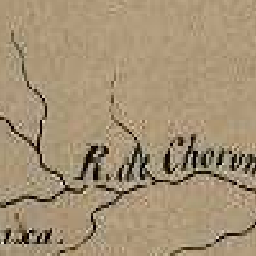 R. de Choron
axa.